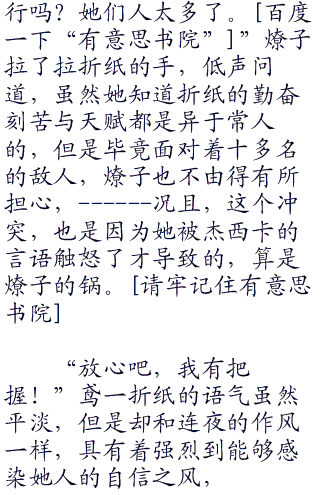 行吗？她们人太多了。[百度
一下“有意思书院”]”燎子
拉了拉折纸的手，低声问
道，虽然她知道折纸的勤奋
刻苦与天赋都是异于常人
的，但是毕竟面对着十多名
的敌人，燎子也不由得有所
担心，------况且，这个冲
突，也是因为她被杰西卡的
言语触怒了才导致的，算是
燎子的锅。[请牢记住有意思
书院]
“放心吧，我有把
握！”鸢一折纸的语气虽然
平淡，但是却和连夜的作风
一样，具有着强烈到能够感
染她人的自信之风，